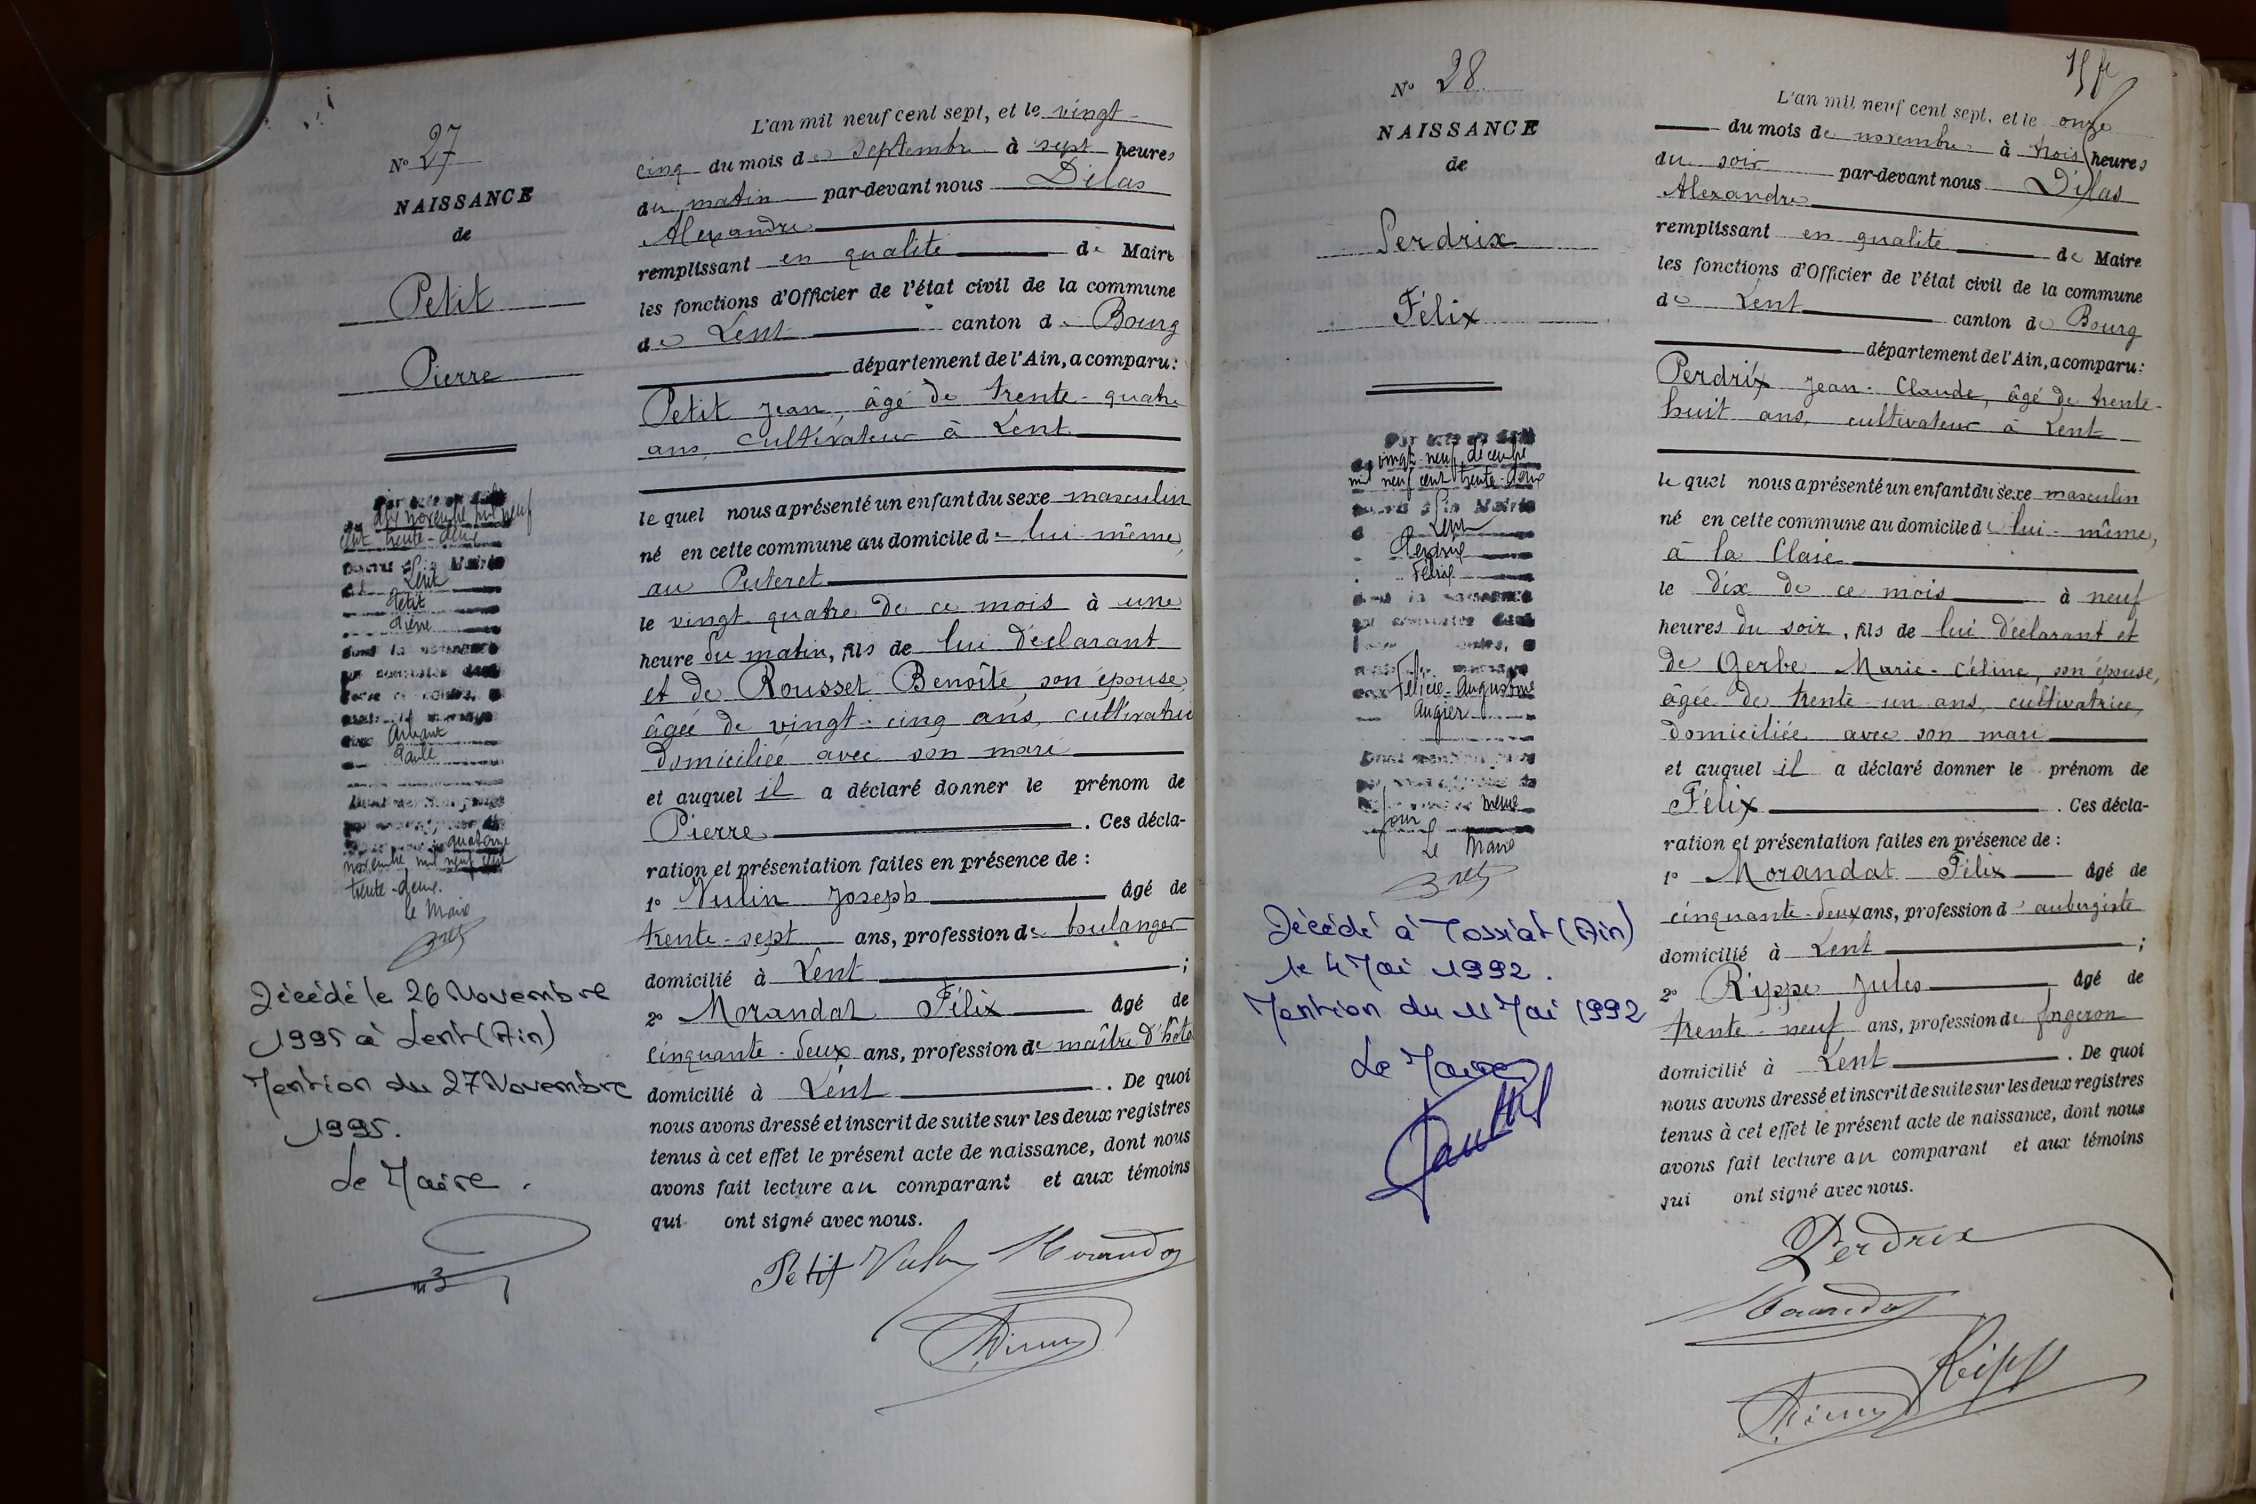 N° 27
NAISSANCE
de
Petit
Pierre
du dix novembre mil neuf
cent trente-deux
Mairie
Lent
Petit
Pierre
avec
Paule
quatorze
novembre mil neuf cent
trente-deux.
Le Maire
Décédé le 26 Novembre
1995 à Lent (Ain)
Mention du 27 Novembre
1995.
Le Maire.
L'an mil neuf cent sept, et le vingt-
cinq du mois de septembre à sept heures
du matin par-devant nous Délas
Alexandre
remplissant en qualité de Maire
les fonctions d'Officier de l'état civil de la commune
de Lent canton de Bourg
département de l'Ain, a comparu:
Petit Jean, âgé de trente-quatre
ans, cultivateur à Lent
lequel nous a présenté un enfant du sexe masculin
né en cette commune au domicile de lui-même,
au Puteret
le vingt-quatre de ce mois à une
heure du matin, fils de lui déclarant
et de Rousset Benoîte, son épouse,
âgée de vingt-cinq ans, cultivatrice
domiciliée avec son mari
et auquel il a déclaré donner le prénom de
Pierre. Ces décla-
ration et présentation faites en présence de :
1° Vulin Joseph âgé de
trente-sept ans, profession de boulanger
domicilié à Lent ;
2° Morandat Félix âgé de
cinquante-deux ans, profession de maître d'hôtel
domicilié à Lent. De quoi
nous avons dressé et inscrit de suite sur les deux registres
tenus à cet effet le présent acte de naissance, dont nous
avons fait lecture au comparant et aux témoins
qui ont signé avec nous.
Petit Vulin Morandat
N° 28
NAISSANCE
de
Perdrix
Félix
vingt-neuf décembre
mil neuf cent trente-deux
Mairie
Lent
Perdrix
Félix
dans la naissance
Félicie-Augustine
Augier
même
jour
Le Maire
Décédé à Tossiat (Ain)
le 4 Mai 1992.
Mention du 11 Mai 1992
Le Maire
L'an mil neuf cent sept, et le onze
du mois de novembre à trois heures
du soir par-devant nous Délas
Alexandre
remplissant en qualité de Maire
les fonctions d'Officier de l'état civil de la commune
de Lent canton de Bourg
département de l'Ain, a comparu:
Perdrix Jean-Claude, âgé de trente-
huit ans, cultivateur à Lent
lequel nous a présenté un enfant du sexe masculin
né en cette commune au domicile de lui-même,
à la Claie
le dix de ce mois à neuf
heures du soir, fils de lui déclarant et
de Gerbe Marie-Céline, son épouse,
âgée de trente-un ans, cultivatrice,
domiciliée avec son mari
et auquel il a déclaré donner le prénom de
Félix. Ces décla-
ration et présentation faites en présence de :
1° Morandat Félix âgé de
cinquante-deux ans, profession d'aubergiste
domicilié à Lent ;
2° Rippe Jules âgé de
trente-neuf ans, profession de forgeron
domicilié à Lent. De quoi
nous avons dressé et inscrit de suite sur les deux registres
tenus à cet effet le présent acte de naissance, dont nous
avons fait lecture au comparant et aux témoins
qui ont signé avec nous.
Perdrix
Morandat
Rippe